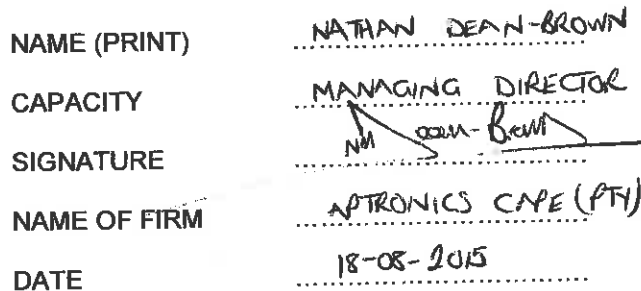 NAME (PRINT) NATHAN DEAN-BROWN
CAPACITY MANAGING DIRECTOR
SIGNATURE Dean-Brown
NAME OF FIRM APTRONICS CAPE (PTY)
DATE 18-08-2015